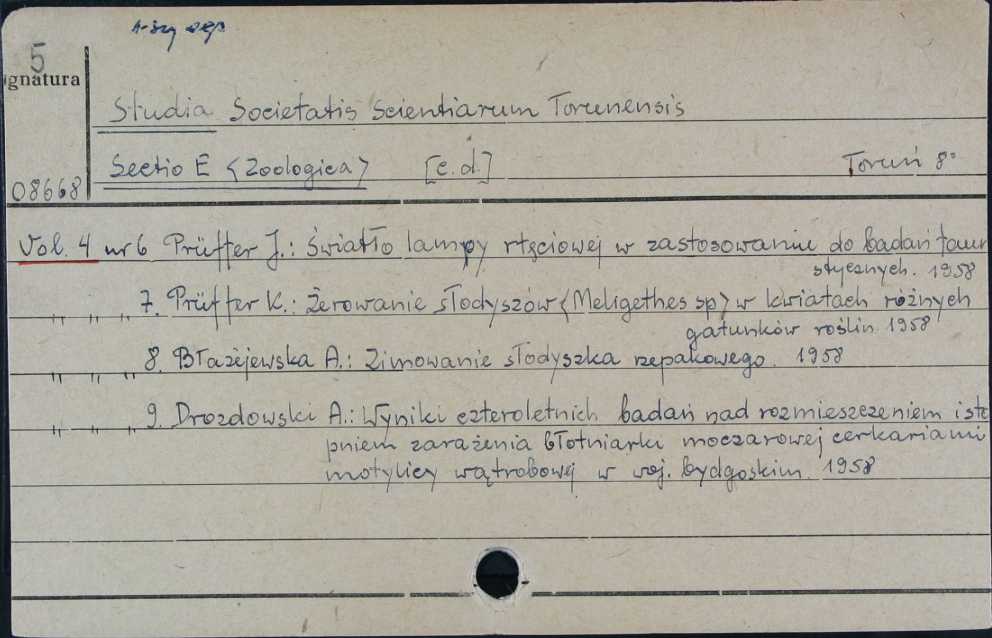 5
gnatura
Studia Societatis Scientiarum Torunensis
Sectio E <Zoologica> [c.d.] Toruń 8°
08668
Vol. 4 nr 6 Prüffer J.: Światło lampy rtęciowej w zastosowaniu do badań faun
stycznych. 1958
" " " 7. Prüffer K.: Żerowanie słodyszów <Meligethes sp> w kwiatach różnych
gatunków roślin 1958
" " " 8. Błażejewska A.: Zimowanie słodyszka rzepakowego. 1958
" " " 9. Drozdowski A.: Wyniki czteroletnich badań nad rozmieszczeniem i sto
pniem zarażenia błotniarki moczarowej cerkariami
motylicy wątrobowej w woj. bydgoskim. 1958